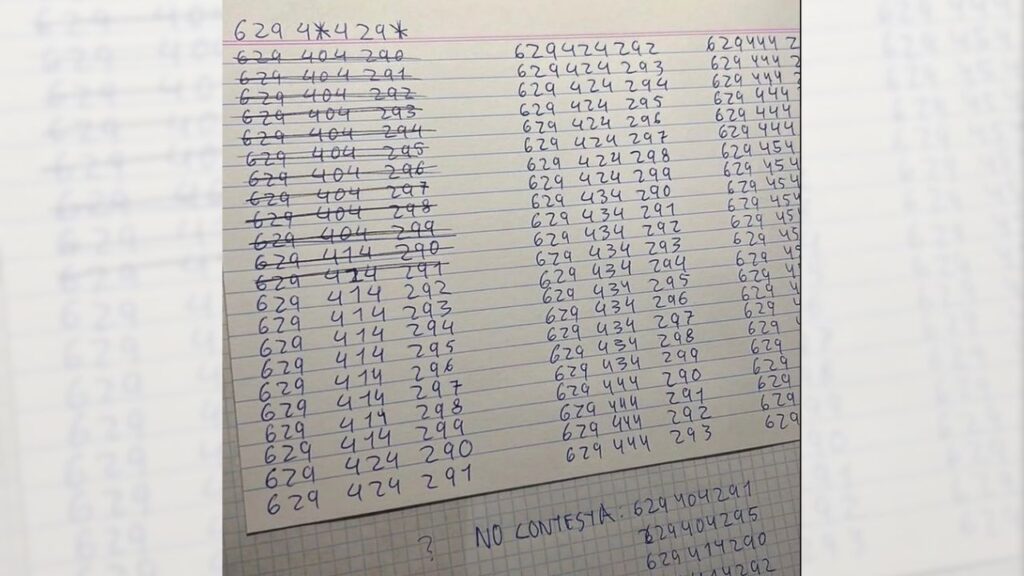 629 4*429*
629 404 290
629 404 291
629 404 292
629 404 293
629 404 294
629 404 295
629 404 296
629 404 297
629 404 298
629 404 299
629 414 290
629 414 291
629 414 292
629 414 293
629 414 294
629 414 295
629 414 296
629 414 297
629 414 298
629 414 299
629 424 290
629 424 291
629424292
629424 293
629 424 294
629 424 295
629 424 296
629 424 297
629 424 298
629 424 299
629 434 290
629 434 291
629 434 292
629 434 293
629 434 294
629 434 295
629 434 296
629 434 297
629 434 298
629 434 299
629 444 290
629 444 291
629 444 292
629 444 293
629444 2
629 444
629 444
629 444
629 444
629 444
629 454
629 454
629 454
629
629
629
629
629
629
629
629
629
629
629
629
629
?
NO CONTESTA: 629404291
629404295
629414290